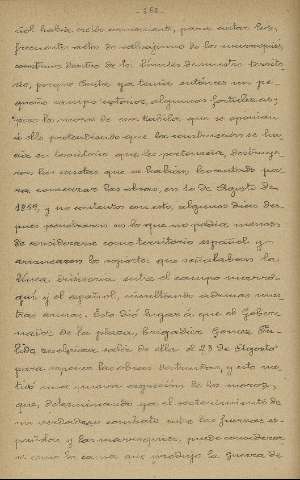 - 162 -
ñol había creído conveniente, para evitar los
frecuentes actos de salvajismo de los marroquíes,
construir dentro de los límites de nuestro territo-
rio, porque Ceuta ya tenía entonces un pe-
queño campo exterior, algunas fortalezas,
pero los moros de Anghera que se oponían
á ello pretextando que la construcción se ha-
cía en territorio que les pertenecía, destruye-
ron las casetas que se habían levantado pa-
ra comenzar las obras, en 10 de Agosto de
1859, y no contentos con esto, algunos días des-
pués penetraron en lo que no podía menos
de considerarse como territorio español y
arrancaron los soportes que señalaban la
línea divisoria entre el campo marro-
quí y el español, insultando además nues-
tras armas. Esto dió lugar á que el Gober-
nador de la plaza, brigadier Gomez Pu-
lido resolviera salir de ella el 23 de Agosto
para reparar las obras destruidas, y esto mo-
tivó una nueva agresión de los moros,
que, determinando ya el sostenimiento de
un verdadero combate entre las fuerzas es-
pañolas y las marroquíes, puede considerar-
se como la causa que produjo la guerra de